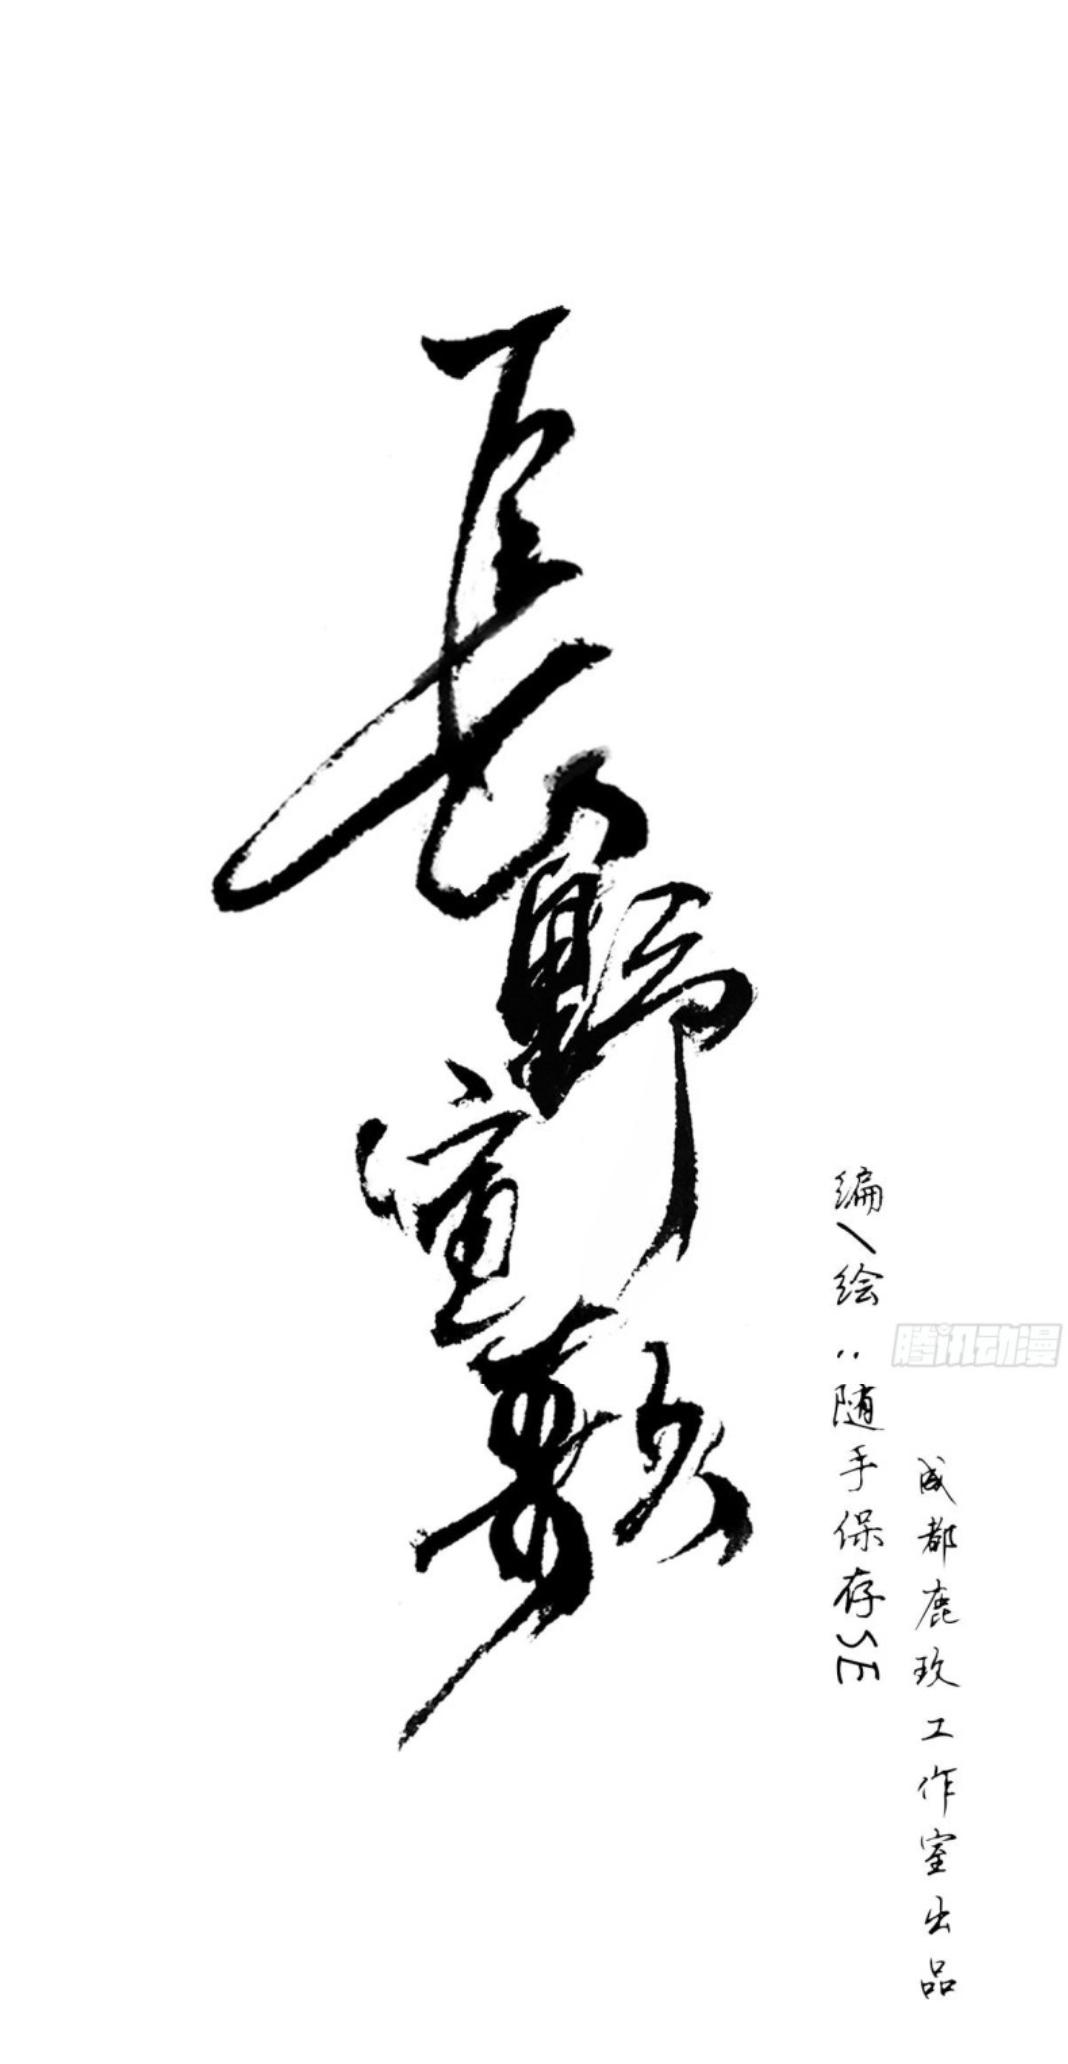 長野宣歌
编/绘:随手保存SE
成都鹿玖工作室出品
腾讯动漫